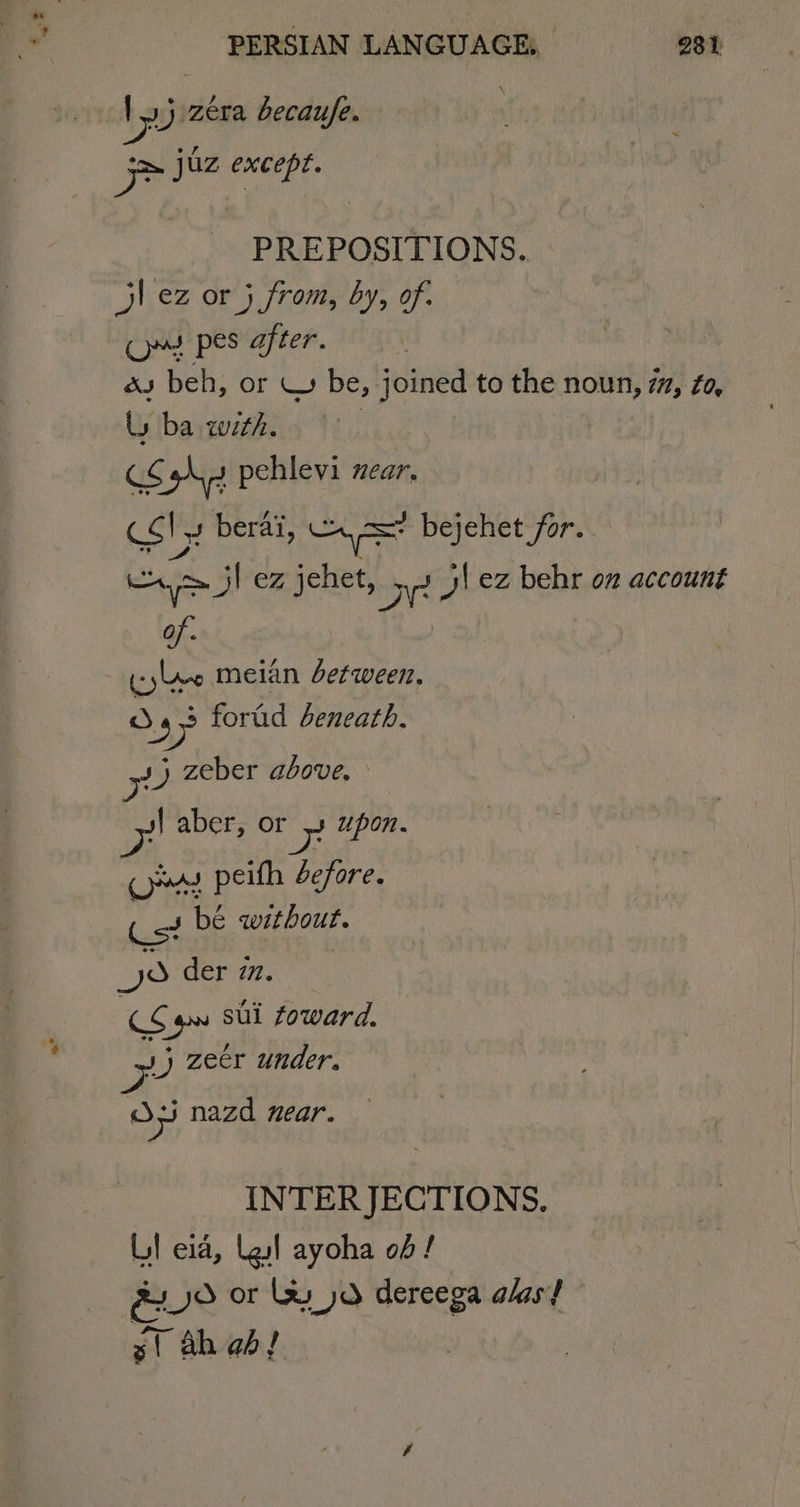 PERSIAN LANGUAGE. 281
زیرا zéra becauſe.
جز jûz except.
PREPOSITIONS.
از ez or ز from, by, of.
پس pes after.
به beh, or ب be, joined to the noun, in, to,
با ba with.
پهلوی pehlevi near.
برای beráï, بجهت bejehet for.
از جهت ez jehet, از بهر ez behr on account
of.
میان meiân between.
فرود forûd beneath.
زبر zeber above.
ابر aber, or بر upon.
پیش peiſh before.
بی bé without.
در der in.
سوی sûï toward.
زیر zeér under.
نزد nazd near.
INTERJECTIONS.
ایا eiá, ایها ayoha oh!
دریغ or دریغا dereega alas!
آه âh ah!